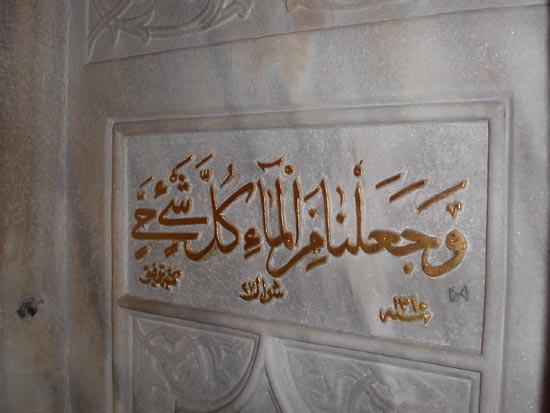 وَجَعَلْنَا مِنَ الْمَاءِ كُلَّ شَيْءٍ حَيٍّ
سنه شوال